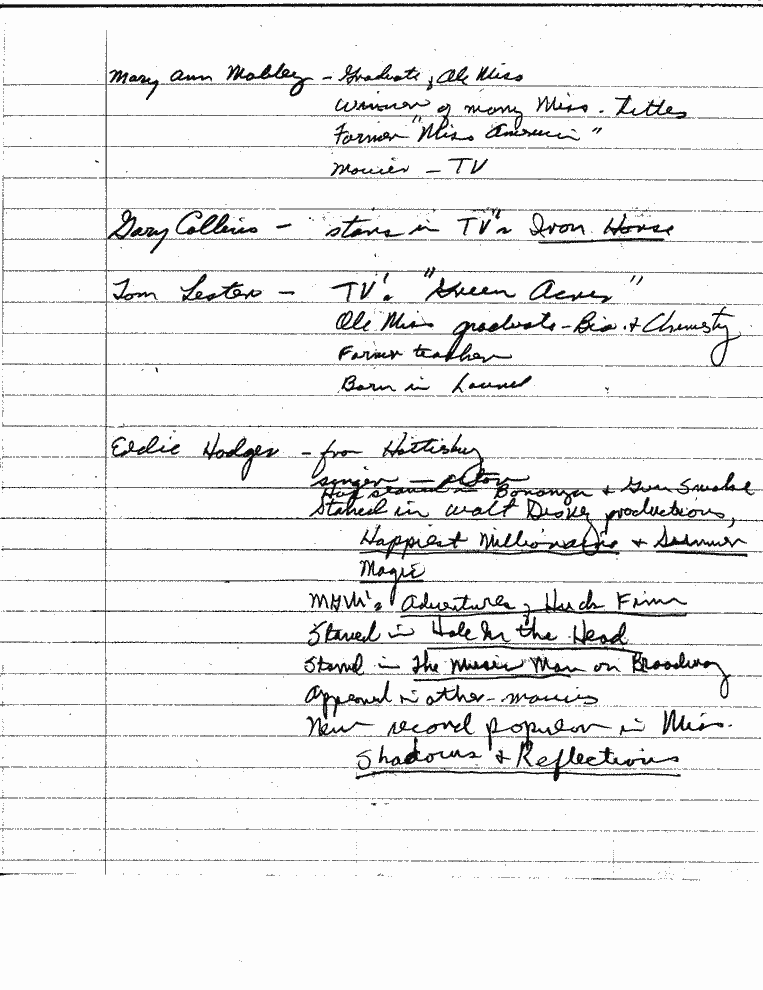 Mary Ann Mobley - Graduate of Ole Miss
Winner of many Miss. titles
Former "Miss America"
Movies - TV
Gary Collins - stars in TV's Iron Horse
Tom Lester - TV's "Green Acres"
Ole Miss graduate - Bio. & Chemistry
Former teacher
Born in Laurel
Eddie Hodges - from Hattisburg
singer - actor
Has starred in Bonanza & Gun Smoke
Starred in Walt Disney productions,
Happiest Millionaire & Summer
Magic
MGM's Adventures of Huck Finn
Starred in Hole In the Head
Starred in The Music Man on Broadway
Appeared in other movies
New record popular in Miss.
Shadows & Reflections